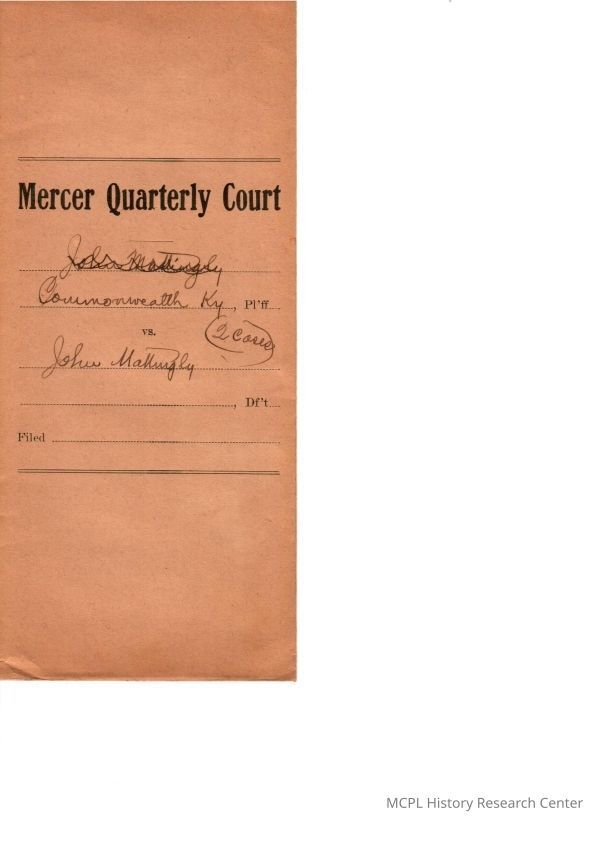 Mercer Quarterly Court
John Mattingly
Commonwealth Ky, Pl'ff
vs.
(2 Cases)
John Mattingly
, Df't
Filed
MCPL History Research Center